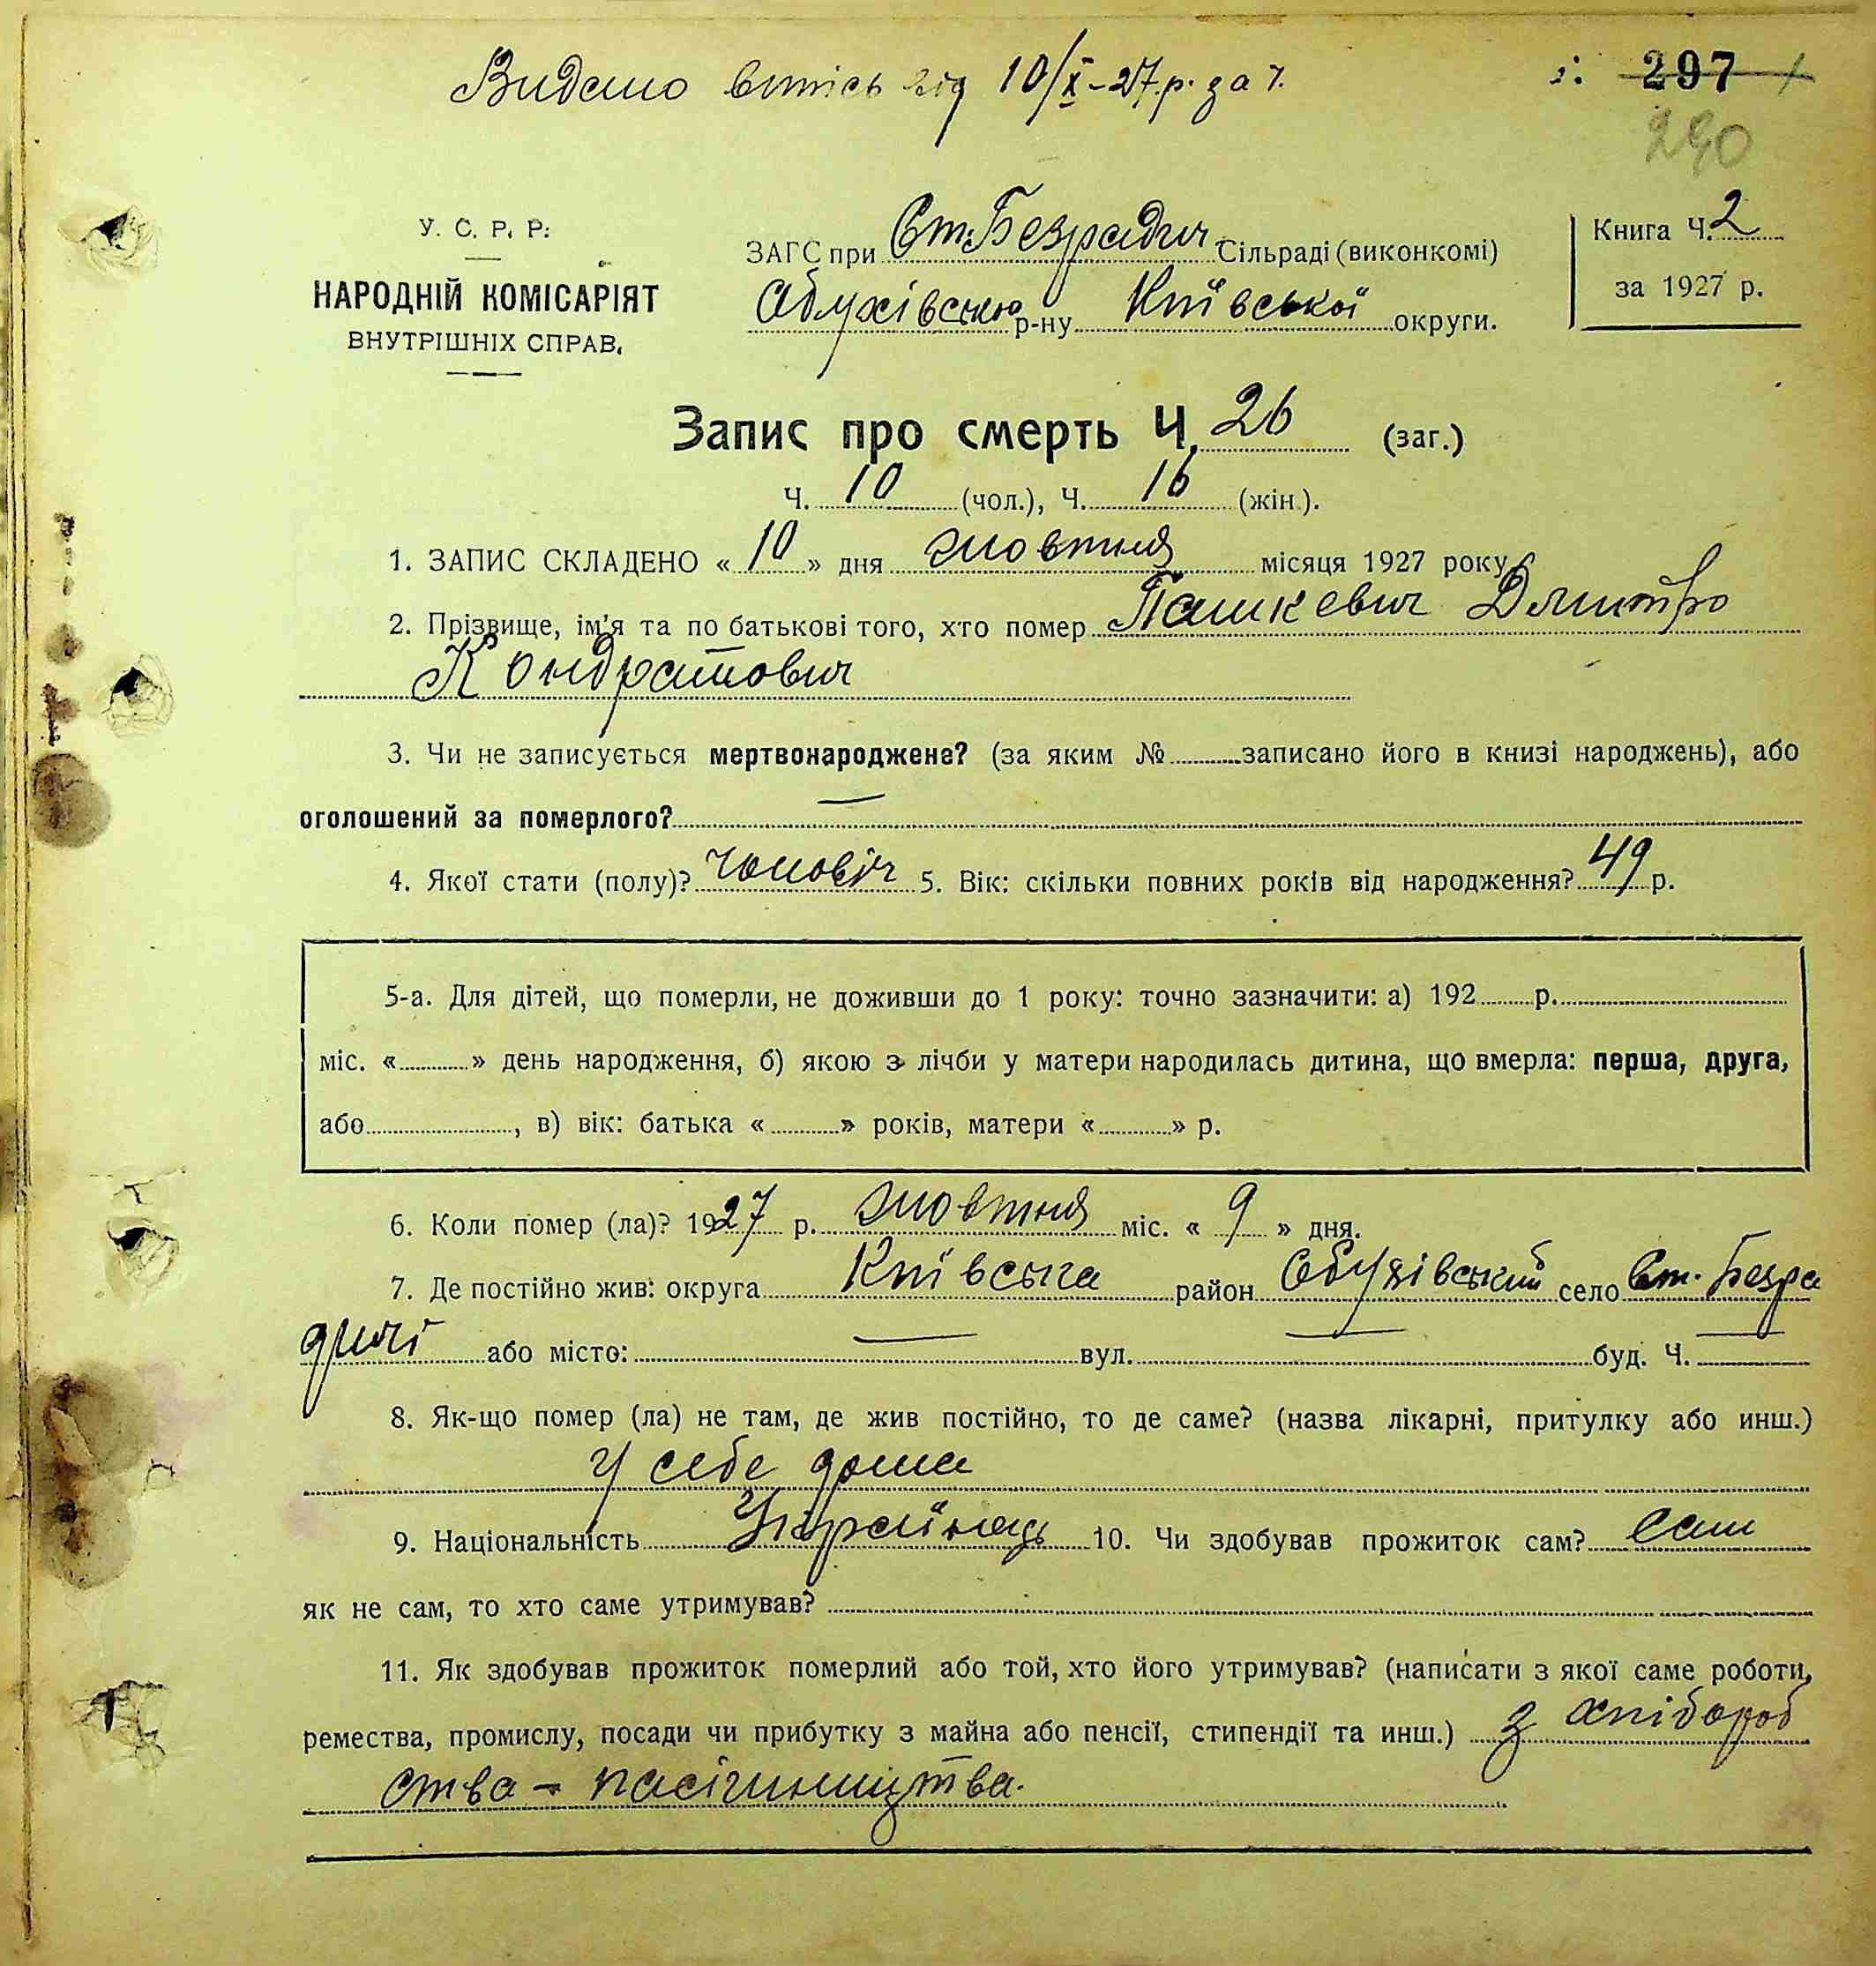 Видано витісь від 10/X-27.р. за 7.
297
290
У. С. Р. Р.
НАРОДНІЙ КОМІСАРІЯТ
ВНУТРІШНІХ СПРАВ.
ЗАГС при Ст. Безрадич. Сільраді (виконкомі)
Обухівсько р-ну Київської округи.
Книга Ч. 2
за 1927 р.
Запис про смерть Ч. 26 (заг.)
Ч. 10 (чол.), Ч. 16 (жін.).
1. ЗАПИС СКЛАДЕНО « 10 » дня жовтня місяця 1927 року
2. Прізвище, ім'я та по батькові того, хто помер Пашкевич Дмитро
Кондратович
3. Чи не записується мертвонароджене? (за яким № записано його в книзі народжень), або
оголошений за померлого? —
4. Якої стати (полу)? чоловіч 5. Вік: скільки повних років від народження? 49 р.
5-а. Для дітей, що померли, не доживши до 1 року: точно зазначити: а) 192 р.
міс. « » день народження, б) якою з лічби у матери народилась дитина, що вмерла: перша, друга,
або , в) вік: батька « » років, матери « » р.
6. Коли помер (ла)? 1927 р. жовтня міс. « 9 » дня.
7. Де постійно жив: округа Київська район Обухівський село Ст. Безра
дичі або місто: — вул. — буд. Ч. —
8. Як-що помер (ла) не там, де жив постійно, то де саме? (назва лікарні, притулку або инш.)
У себе дома
9. Національність Українець 10. Чи здобував прожиток сам? сам
як не сам, то хто саме утримував?
11. Як здобував прожиток померлий або той, хто його утримував? (написати з якої саме роботи,
ремества, промислу, посади чи прибутку з майна або пенсії, стипендії та инш.) з хлібороб
ства - пасічництва.